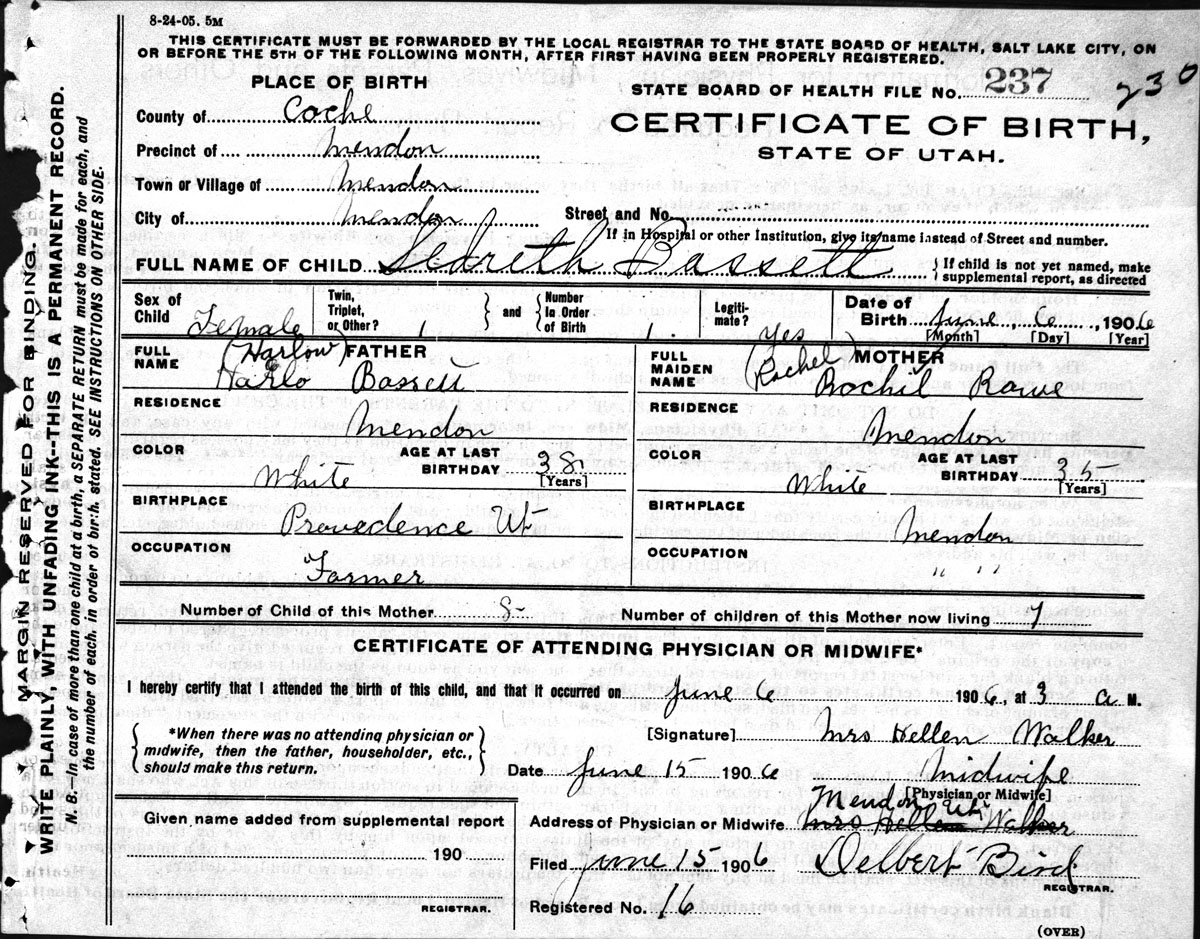 8-24-05. 5M
THIS CERTIFICATE MUST BE FORWARDED BY THE LOCAL REGISTRAR TO THE STATE BOARD OF HEALTH, SALT LAKE CITY, ON
OR BEFORE THE 5TH OF THE FOLLOWING MONTH, AFTER FIRST HAVING BEEN PROPERLY REGISTERED.
PLACE OF BIRTH
STATE BOARD OF HEALTH FILE No. 237 230
County of Cache
CERTIFICATE OF BIRTH,
STATE OF UTAH.
Precinct of Mendon
Town or Village of Mendon
City of Mendon
Street and No.
If in Hospital or other Institution, give its name instead of Street and number.
FULL NAME OF CHILD Sedreth Bassett
{ If child is not yet named, make
supplemental report, as directed
Sex of Child Female
Twin, Triplet, or Other? 1
} and { Number In Order of Birth 1.
Legiti-mate? Yes
Date of Birth June 6, 1906
[Month] [Day] [Year]
FULL NAME (Harlow) FATHER
Harlo Bassett
FULL MAIDEN NAME (Rachel) MOTHER
Rachil Rowe
RESIDENCE
Mendon
RESIDENCE
Mendon
COLOR White
AGE AT LAST BIRTHDAY 38
[Years]
COLOR White
AGE AT LAST BIRTHDAY 35
[Years]
BIRTHPLACE
Provedence Ut
BIRTHPLACE
Mendon
OCCUPATION
Farmer
OCCUPATION
" " "
Number of Child of this Mother 8
Number of children of this Mother now living 7
CERTIFICATE OF ATTENDING PHYSICIAN OR MIDWIFE*
I hereby certify that I attended the birth of this child, and that it occurred on June 6 1906, at 3 a M.
{ *When there was no attending physician or
midwife, then the father, householder, etc.,
should make this return. }
[Signature] Mrs Hellen Walker
Date June 15 1906 Midwife
[Physician or Midwife]
Mendon Ut
Address of Physician or Midwife Mrs Hellen Walker
Filed June 15 1906 Delbert Bird
REGISTRAR.
Registered No. 16
Given name added from supplemental report
190
REGISTRAR.
(OVER)
▼ MARGIN RESERVED FOR BINDING. ▼
WRITE PLAINLY, WITH UNFADING INK--THIS IS A PERMANENT RECORD.
N. B.—In case of more than one child at a birth, a SEPARATE RETURN must be made for each, and
the number of each, in order of birth, stated. SEE INSTRUCTIONS ON OTHER SIDE.